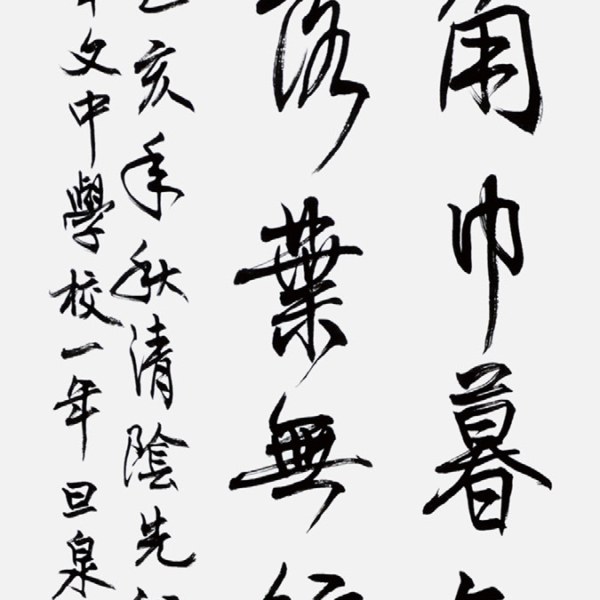 角巾暮
落葉無
亥年秋清陰先
文中學校一年旦泉